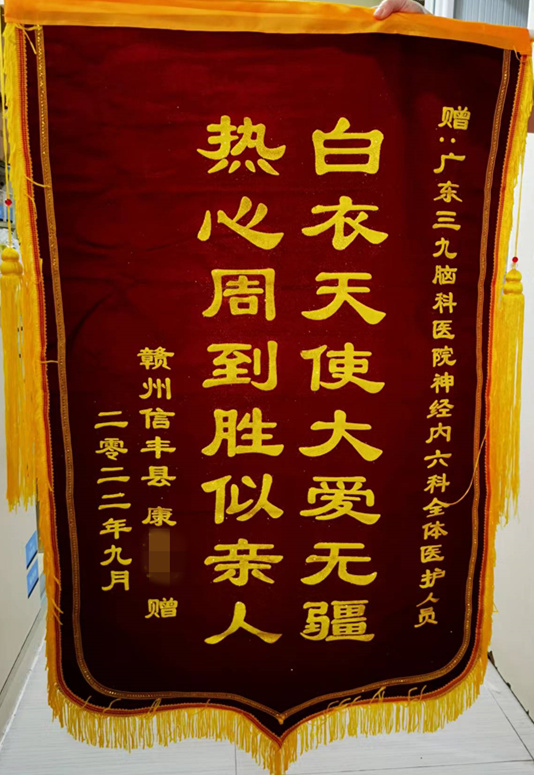 赠:广东三九脑科医院神经内六科全体医护人员
白衣天使大爱无疆
热心周到胜似亲人
赣州信丰县 康 赠
二零二二年九月